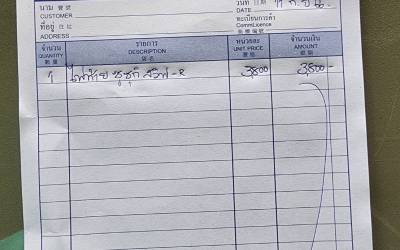 นาม 寶號
CUSTOMER
วันที่ 日期 11 ก.ย.
DATE
ที่อยู่ 住址
ADDRESS
ทะเบียนการค้า
Comm.Licence
จำนวน รายการ หน่วยละ จำนวนเงิน
QUANTITY DESCRIPTION UNIT PRICE AMOUNT
數量 貨名 單價 金額
1 ไฟท้าย ซูซูกิ สวิฟ - R 3,800 3,800 -